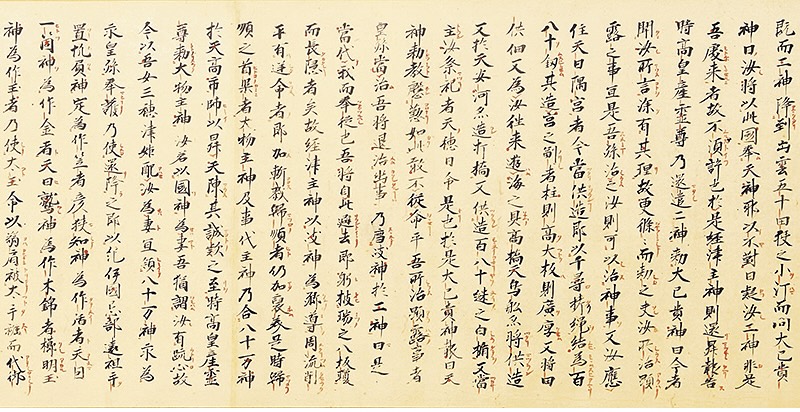 既而二神降到出雲五十田狹之小汀而問大己貴
神曰汝將以此國奉天神耶以不對曰疑汝二神非是
吾處來者故不須許也於是經津主神則還昇報告
時高皇產靈尊乃還遣二神勅大己貴神曰今者
聞汝所言深有其理故更條〻而勅之夫汝所治顕
露之事宜是吾孫治之汝則可以治神事又汝應
住天日隅宮者今當供造即以千尋栲縄結為百
八十紐其造宮之制者柱則高大板則廣厚又將田
供佃又為汝往来遊海之具高橋天鳥船亦將供造
又於天安河亦造打橋又供造百八十縫之白楯又當
主汝祭祀者天穗日命是也於是大己貴神報曰天
神勅教慇懃如此敢不從命乎吾所治顕露事者
皇孫當治吾將退治幽事乃薦岐神於二神曰是
當代我而奉從也吾將自此避去即躬披瑞之八坂瓊
而長隱者矣故經津主神以岐神為鄕導周流削
平有逆命者即加斬戮歸順者仍加褒美是時歸
順之首渠者大物主神及事代主神乃合八十万神
於天高市帥以昇天陳其誠款之至時高皇產靈
尊勅大物主神汝若以國神為妻吾猶謂汝有疏心故
今以吾女三穗津姬配汝為妻宜領八十万神永為
皇孫奉護乃使還降之即以紀伊國忌部遠祖手
置帆負神定為作笠者彦狹知神為作盾者天目
一箇神為作金者天日鷲神為作木綿者櫛明玉
神為作玉者乃使太玉命以弱肩被太手繦而代御